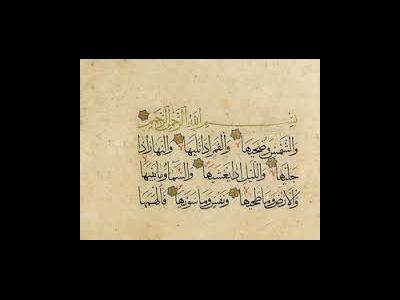 بسم الله الرحمن الرحيم
والشمس وضحيها والقمر اذا تليها والنهار اذا
جليها والليل اذا يغشيها والسماء وما بنيها
والارض وما طحيها ونفس وما سويها فالهمها